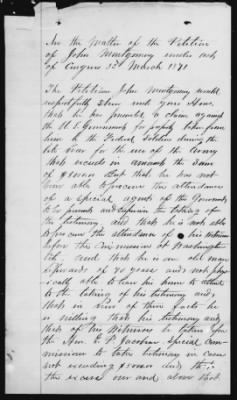 In the Matter of the Petition
of John Montgomery under act
of Congress 3d March 1871
The Petitioner John Montgomery would
respectfully show unto your Hons
that he has presented a claim against
the U.S. Government for property taken from
him by the Federal Soldiers during the
late War for the use of the Army
that exceeds in amount the sum
of But that he has not
been able to procure the attendance
of a special agent of the Government
to be present and the taking of
the testimony and that he is not able
to procure the attendance of his witnesses
before the Commission at Washington
City, and that he is an old man
upwards of 70 years and not phys-
ically able to leave his home to attend
to the taking of his testimony and,
that in view of these facts he
is willing that his testimony and
that of his Witnesses be taken before
the Hon. E. P. Jacobson Special Com-
missioner to take testimony in cases
not exceeding and the
the excess over and above that